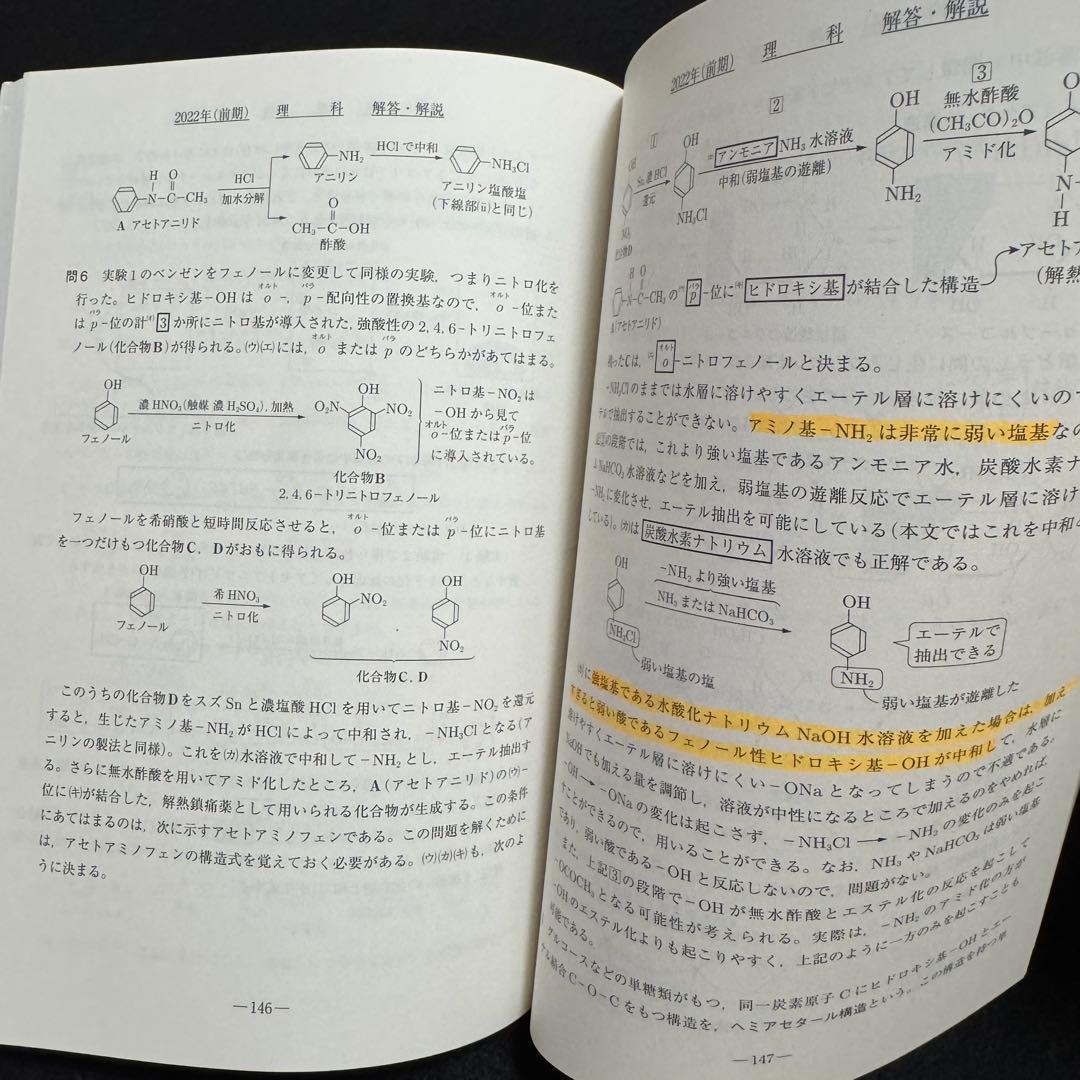 2022年(前期) 理 科 解答・解説
H O
N-C-CH₃
A アセトアニリド
HCl
加水分解
NH₂
アニリン
HClで中和
NH₃Cl
アニリン塩酸塩
(下線部(ⅱ)と同じ)
O
CH₃-C-OH
酢酸
問6 実験1のベンゼンをフェノールに変更して同様の実験，つまりニトロ化を
行った。ヒドロキシ基-OHは o-，p-配向性の置換基なので，o-位また
は p-位の計(オ)3か所にニトロ基が導入された，強酸性の2,4,6-トリニトロフェ
ノール(化合物B)が得られる。(ウ)(エ)には，o または p のどちらかがあてはまる。
OH
フェノール
濃HNO₃(触媒 濃H₂SO₄)，加熱
ニトロ化
OH
O₂N NO₂
NO₂
化合物B
2,4,6-トリニトロフェノール
ニトロ基-NO₂は
-OHから見て
o-位またはp-位
に導入されている。
フェノールを希硝酸と短時間反応させると，o-位または p-位にニトロ基
を一つだけもつ化合物C，Dがおもに得られる。
OH
フェノール
希HNO₃
ニトロ化
OH
NO₂
OH
NO₂
化合物C，D
このうちの化合物DをスズSnと濃塩酸HClを用いてニトロ基-NO₂を還元
すると，生じたアミノ基-NH₂がHClによって中和され，-NH₃Clとなる(ア
ニリンの製法と同様)。これを(カ)水溶液で中和して-NH₂とし，エーテル抽出す
る。さらに無水酢酸を用いてアミド化したところ，A(アセトアニリド)の(ウ)-
位に(キ)が結合した，解熱鎮痛薬として用いられる化合物が生成する。この条件
にあてはまるのは，次に示すアセトアミノフェンである。この問題を解くために
は，アセトアミノフェンの構造式を覚えておく必要がある。(ウ)(カ)(キ)も，次のよ
うに決まる。
—146—
2022年(前期) 理 科 解答・解説
1
Sn, 濃HCl
還元
OH
NH₃Cl
2
アンモニア NH₃水溶液
中和(弱塩基の遊離)
OH
NH₂
3
無水酢酸
(CH₃CO)₂O
アミド化
N
H
アセト
(解熱
H O
N-C-CH₃の(ウ)p-位に(キ)ヒドロキシ基が結合した構造
A(アセトアニリド)
ったCは，(エ)o-ニトロフェノールと決まる。
-NH₃Clのままでは水層に溶けやすくエーテル層に溶けにくいので
テルで抽出することができない。アミノ基-NH₂は非常に弱い塩基なの
の段階では，これより強い塩基であるアンモニア水，炭酸水素ナ
NaHCO₃水溶液などを加え，弱塩基の遊離反応でエーテル層に溶け
-NH₂に変化させ，エーテル抽出を可能にしている(本文ではこれを中和
している)。(カ)は炭酸水素ナトリウム水溶液でも正解である。
OH
NH₃Cl
弱い塩基の塩
-NH₂より強い塩基
NH₃またはNaHCO₃
OH
NH₂
弱い塩基が遊離した
エーテルで
抽出できる
(カ)に強塩基である水酸化ナトリウムNaOH水溶液を加えた場合は，加え
すぎると弱い酸であるフェノール性ヒドロキシ基-OHが中和して，水層に
溶けやすくエーテル層に溶けにくい-ONaとなってしまうので不適である。
NaOHでも加える量を調節し，溶液が中性になるところで加えるのをやめれば，
-OH→-ONaの変化は起こさず，-NH₃Cl→-NH₂の変化のみを起こ
すことができるので，用いることができる。なお，NH₃やNaHCO₃は弱い塩基
であり，弱い酸である-OHと反応しないので，問題がない。
また，上記3の段階で-OHが無水酢酸とエステル化の反応を起こして
-OCOCH₃となる可能性が考えられる。実際は，-NH₂のアミド化の方が
-OHのエステル化よりも起こりやすく，上記のように一方のみを起こすことも
可能である。
グルコースなどの単糖類がもつ，同一炭素原子CにヒドロキシHと基-OHとエー
テル結合C-O-Cをもつ構造を，ヘミアセタール構造という。この構造を持つ単
—147—